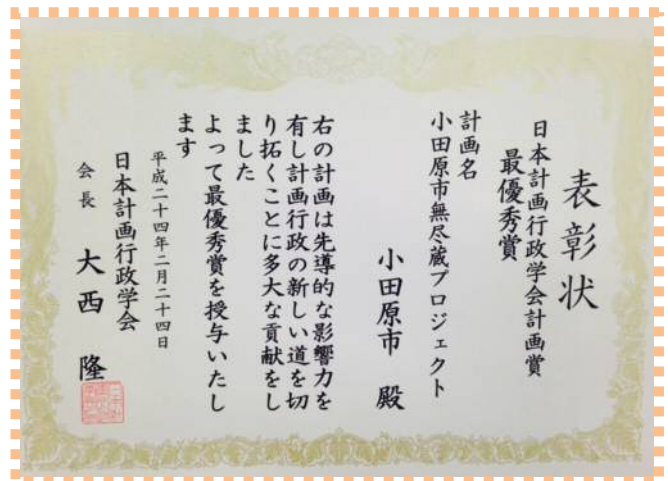 表彰状
日本計画行政学会計画賞
最優秀賞
計画名
小田原市無尽蔵プロジェクト
小田原市 殿
右の計画は先導的な影響力を
有し計画行政の新しい道を切
り拓くことに多大な貢献をし
ました
よって最優秀賞を授与いたし
ます
平成二十四年二月二十四日
日本計画行政学会
会長 大西 隆